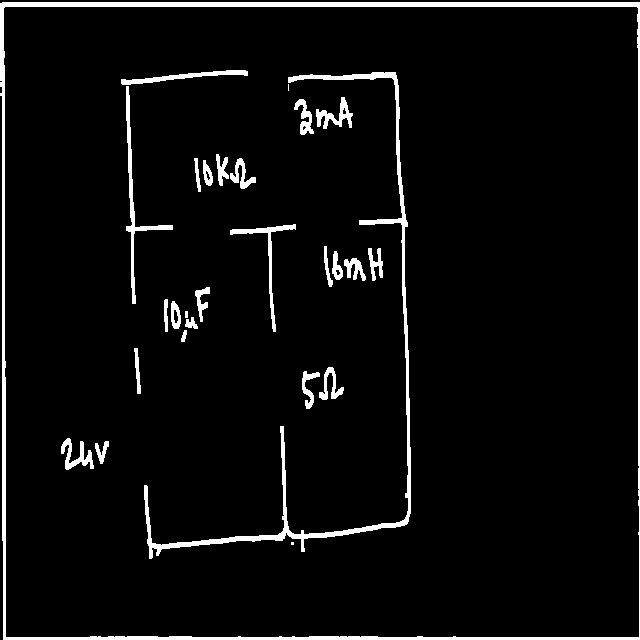 3mA
10KΩ
16mH
10μF
5Ω
24V